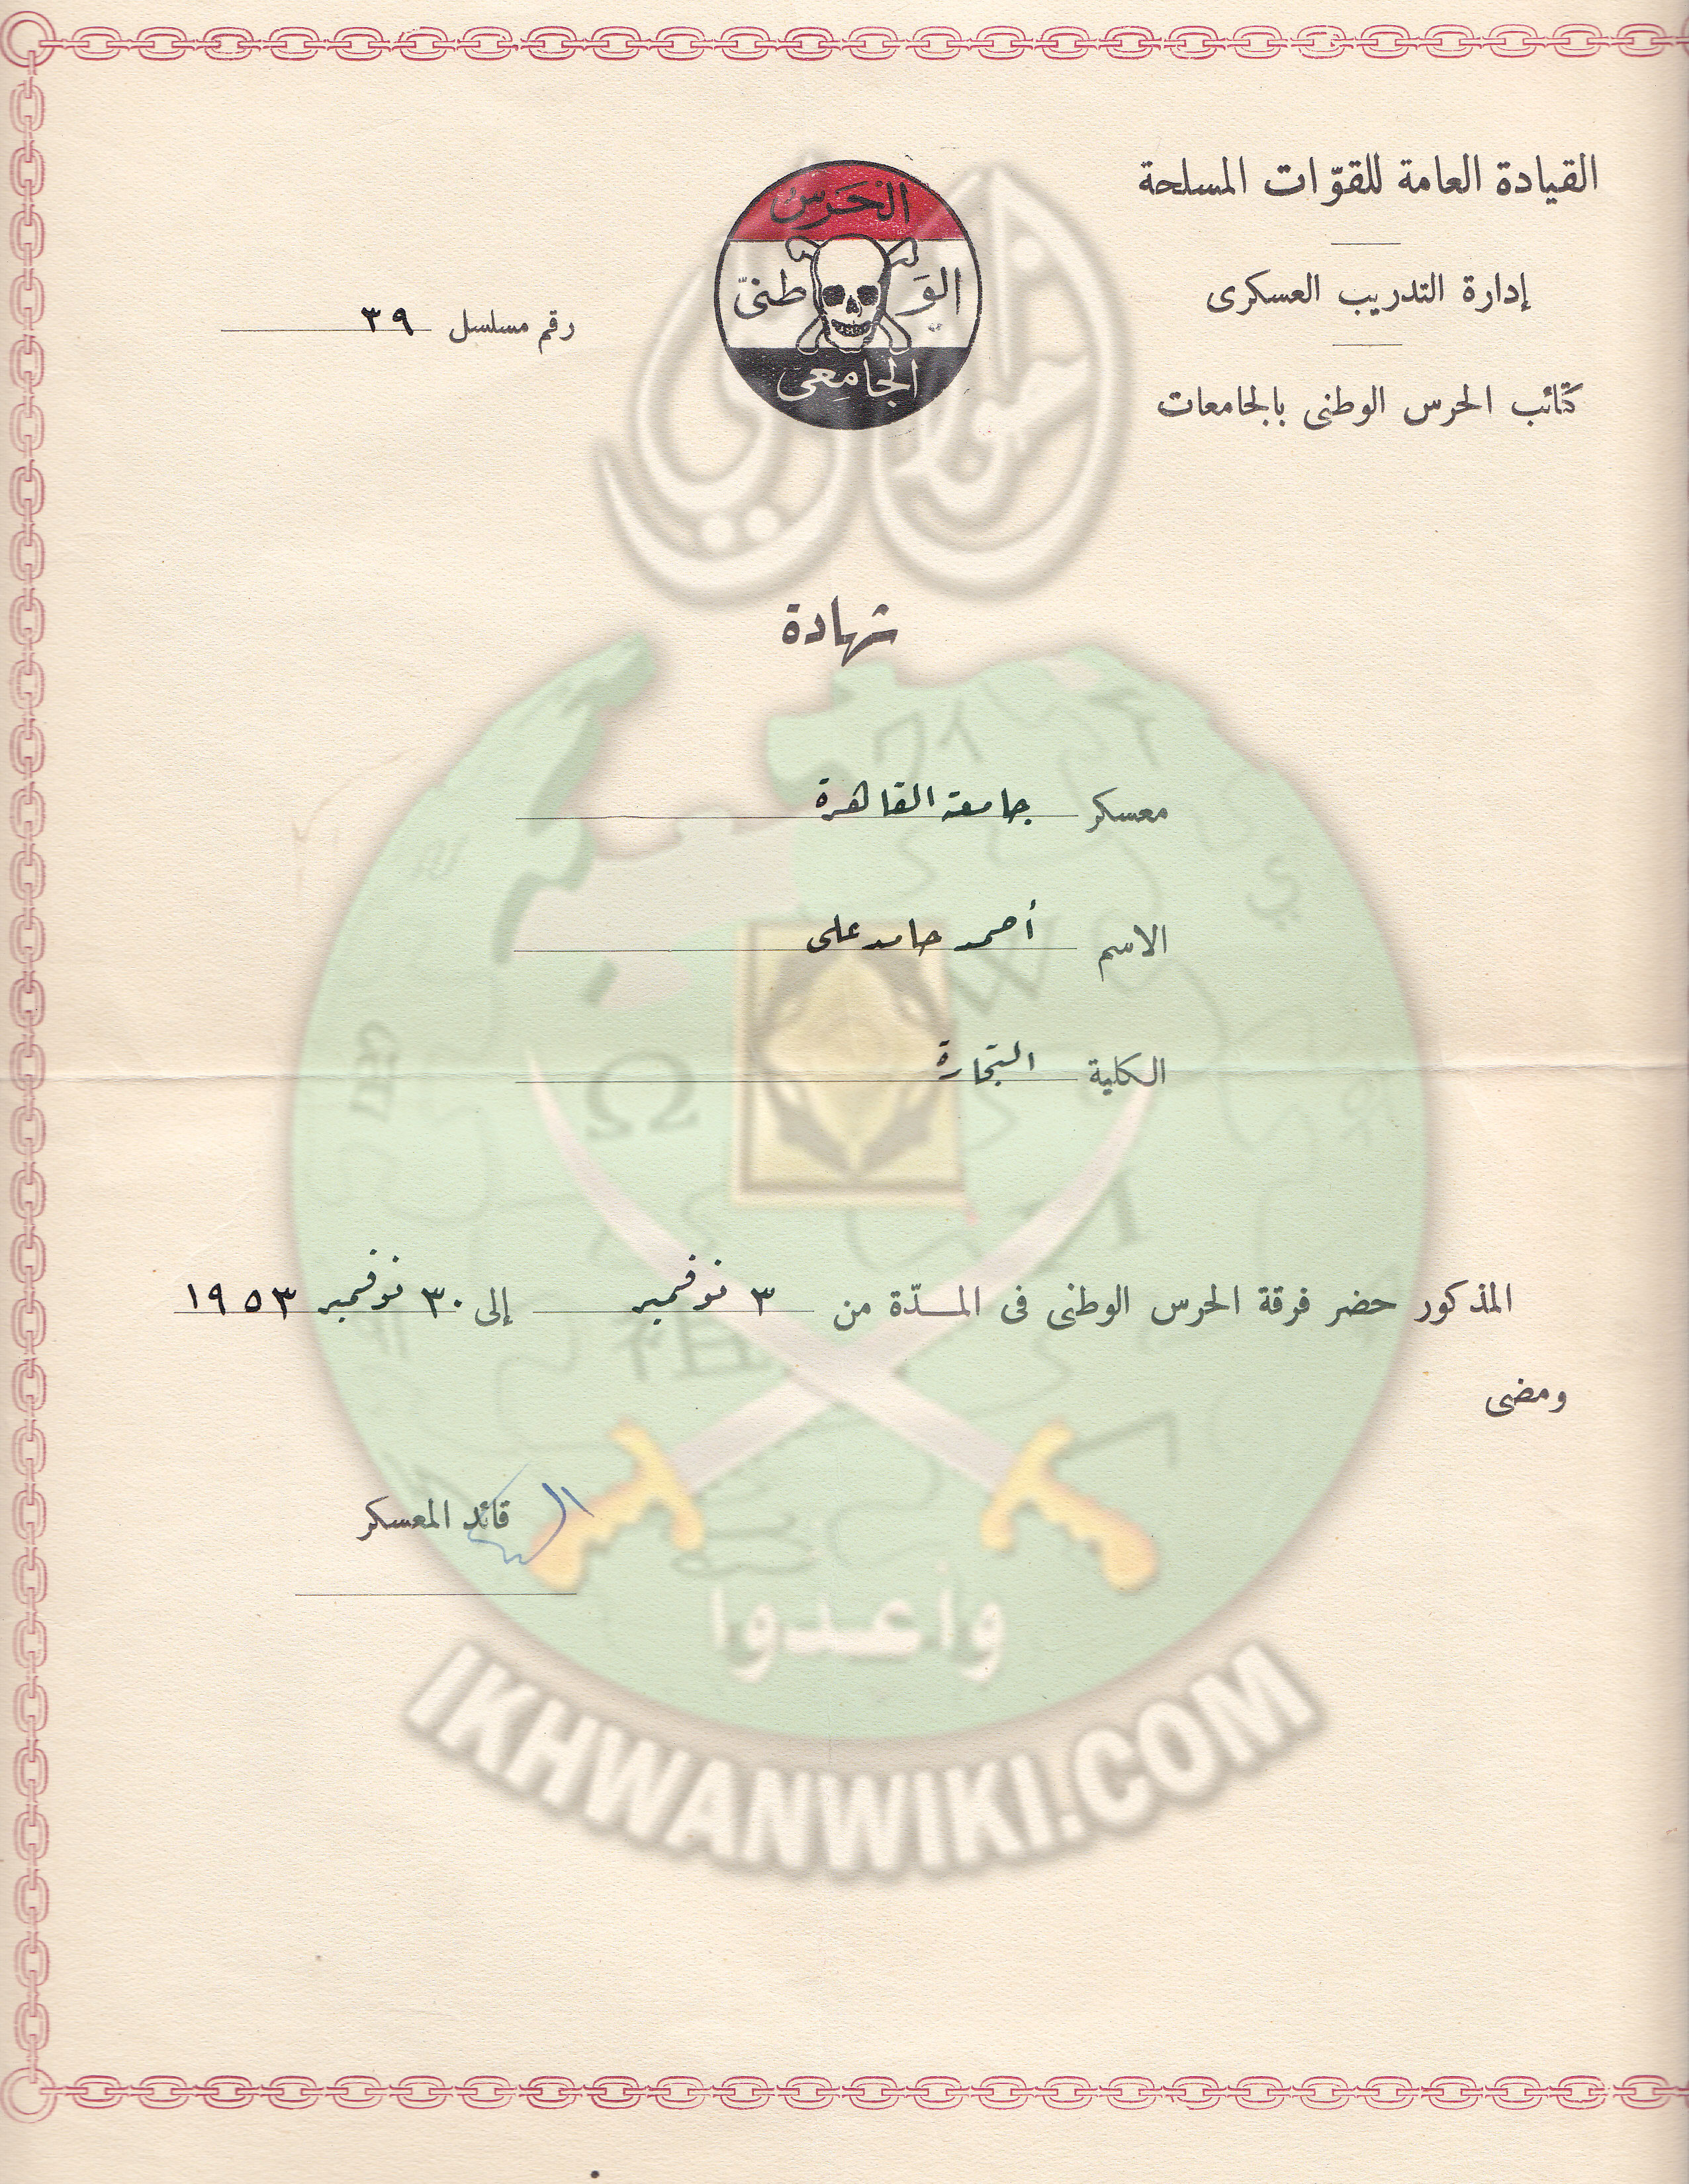 القيادة العامة للقوّات المسلحة
إدارة التدريب العسكرى
كتائب الحرس الوطنى بالجامعات
الحَرس
الوَطنىّ
الجامِعى
رقم مسلسل ٣٩
شهادة
معسكر جامعة القاهرة
الاسم أحمد حامد على
الكلية التجارة
المذكور حضر فرقة الحرس الوطنى فى المدّة من ٣ نوفمبر إلى ٣٠ نوفمبر ١٩٥٣
ومضى
قائد المعسكر
وأعدوا
IKHWANWIKI.COM